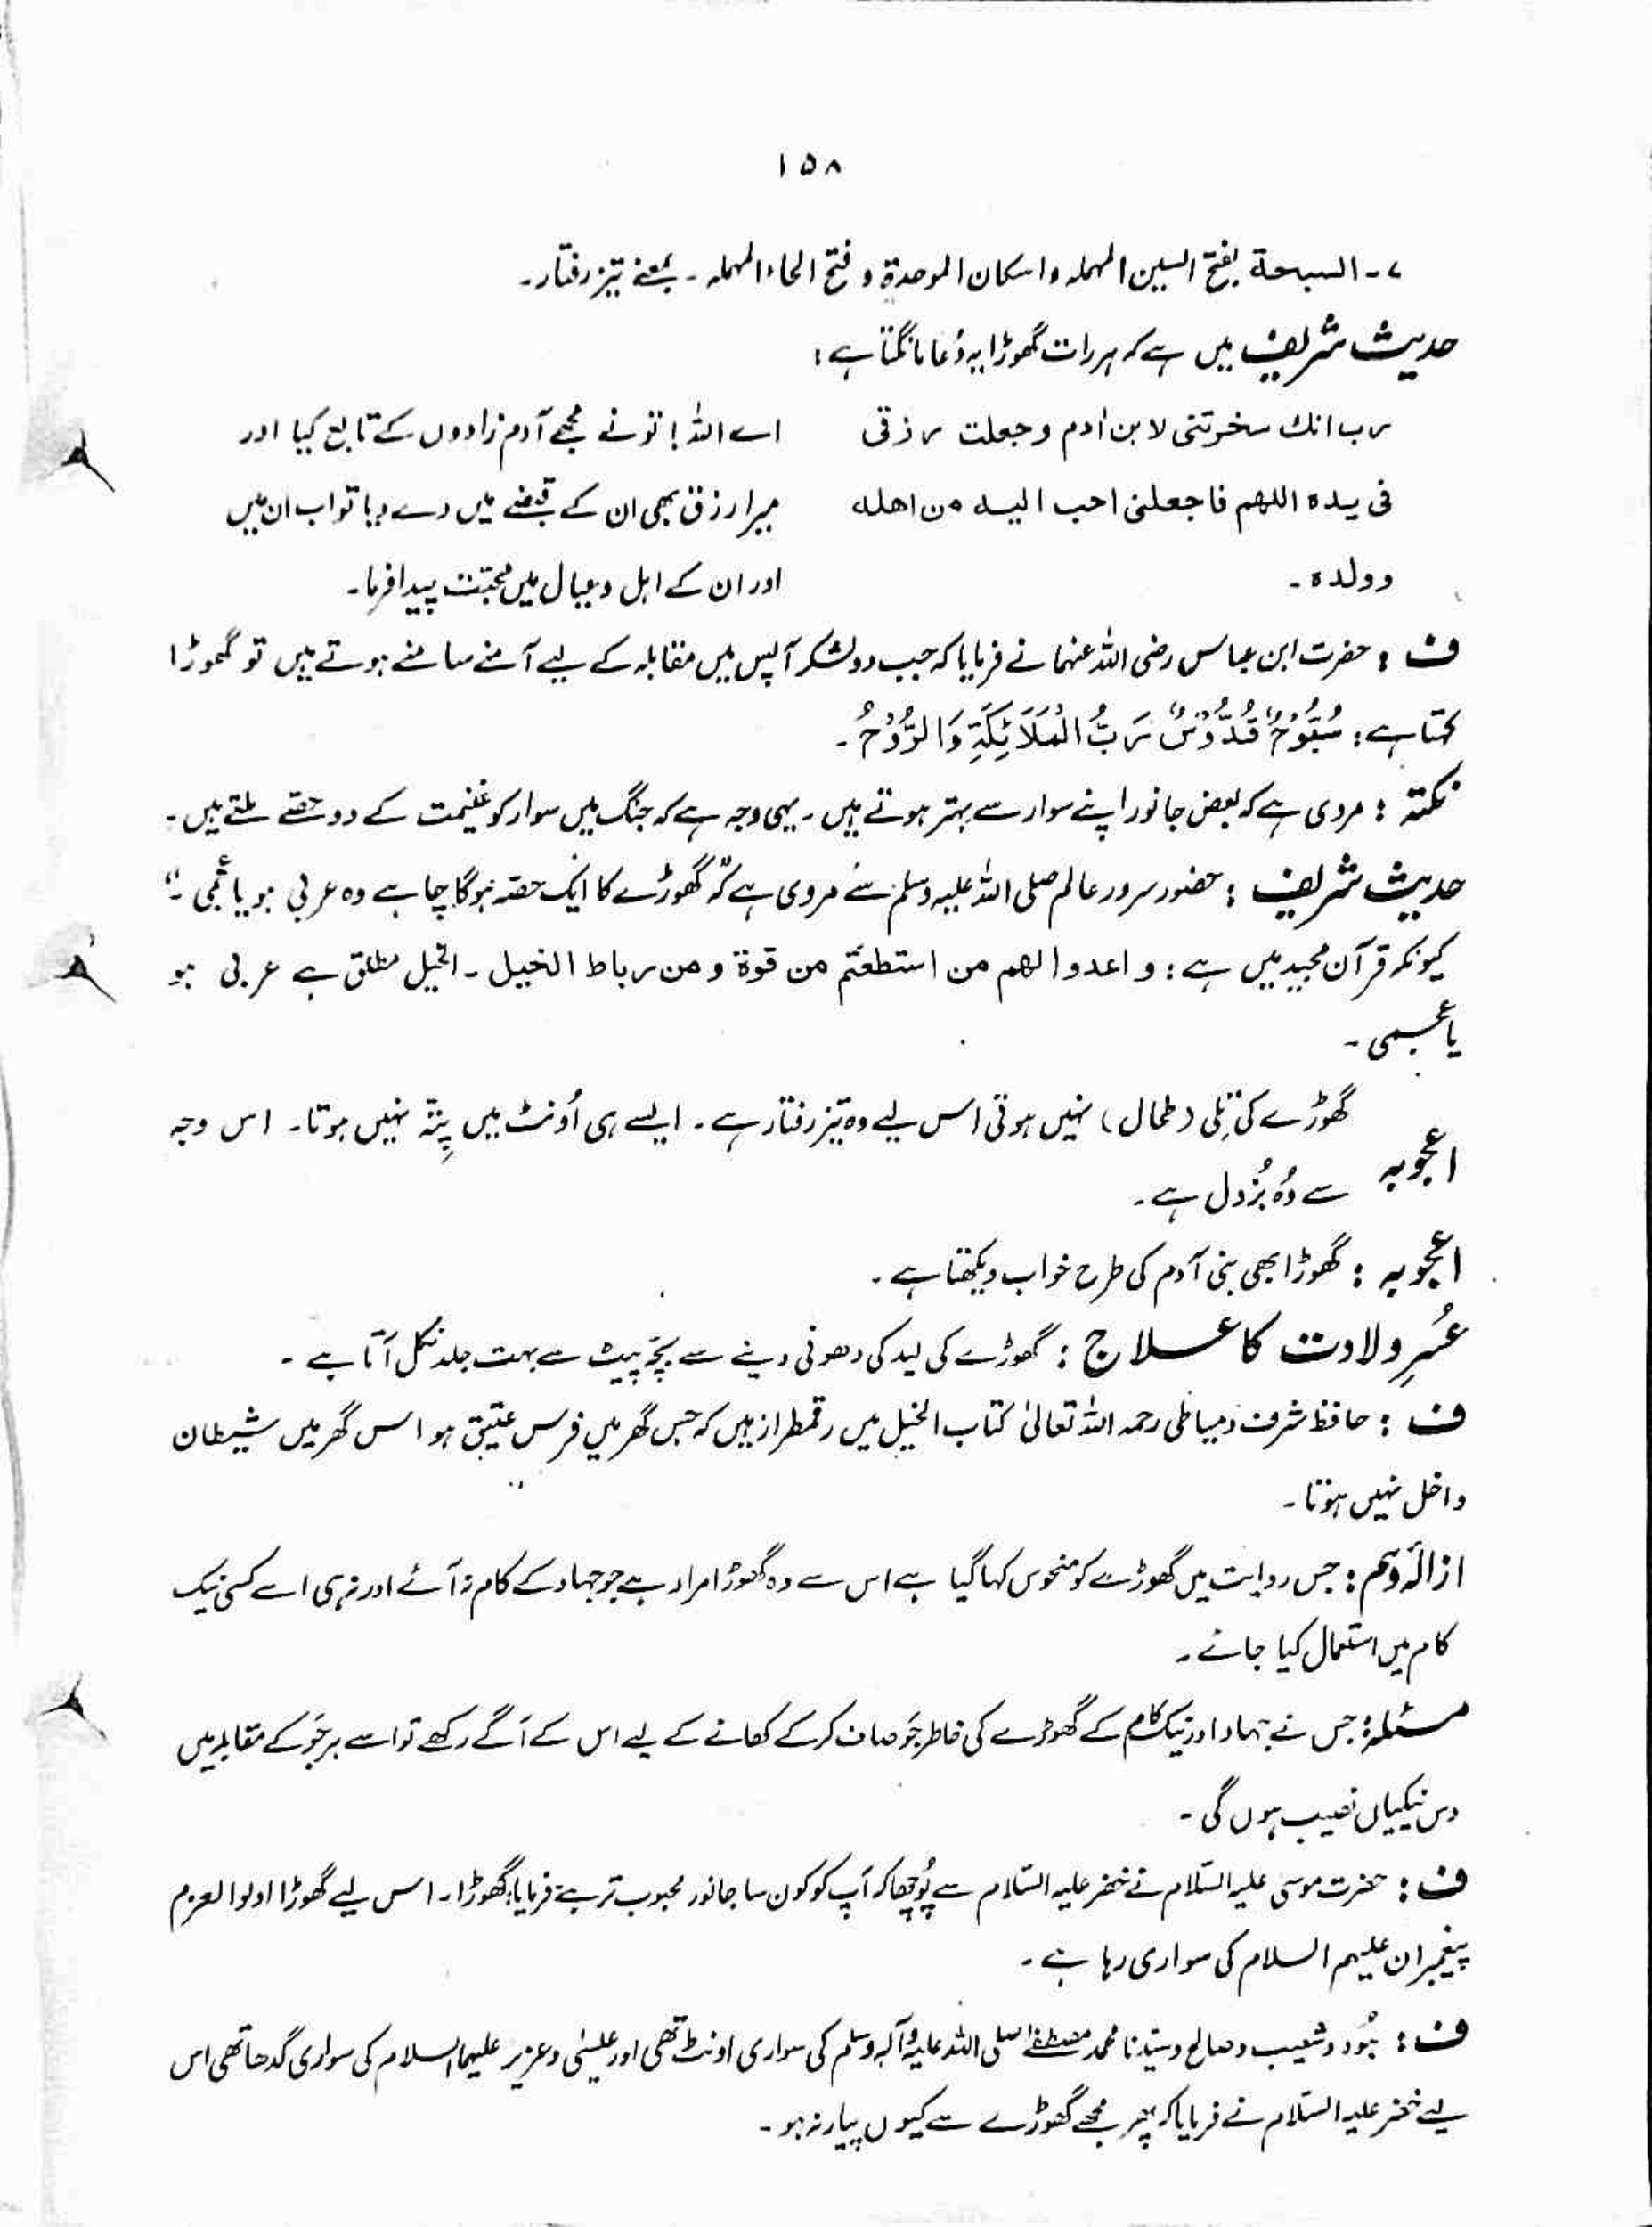 ۱۵۸
۷۔ السبحة بفتح السین المہملہ واسکان الموحدۃ و فتح الحاء المہملہ ۔ بمعنے تیز رفتار۔
حدیث شریف میں ہے کہ ہر رات گھوڑا یہ دُعا مانگتا ہے :
رب انك سخرتنی لابن اٰدم وجعلت رزقی اے اللہ ! تو نے مجھے آدم زادوں کے تابع کیا اور
فی یدہ اللهم فاجعلنی احب الیہ من اھلہ میرا رزق بھی ان کے قبضے میں دے دیا تو اب ان میں
وولدہ ۔ اور ان کے اہل و عیال میں محبّت پیدا فرما۔
ف : حضرت ابن عباس رضی اللہ عنہما نے فرمایا کہ جب دو لشکر آپس میں مقابلہ کے لیے آمنے سامنے ہوتے ہیں تو گھوڑا
کہتا ہے : سُبُّوْحٌ قُدُّوْسٌ رَبُّ الْمَلَائِكَةِ وَالرُّوْحُ ۔
نکتہ : مروی ہے کہ بعض جانور اپنے سوار سے بہتر ہوتے ہیں ۔ یہی وجہ ہے کہ جنگ میں سوار کو غنیمت کے دو حصّے ملتے ہیں ۔
حدیث شریف : حضور سرور عالم صلی اللہ علیہ وسلم سے مروی ہے کہ ”گھوڑے کا ایک حصّہ ہوگا چاہے وہ عربی ہو یا عجمی ۔“
کیونکہ قرآن مجید میں ہے : و اعدوا لهم من استطعتم من قوة و من رباط الخیل ۔ الخیل مطلق ہے عربی ہو
یا عجمی ۔
گھوڑے کی تِلی (طحال) نہیں ہوتی اس لیے وہ تیز رفتار ہے ۔ ایسے ہی اُونٹ میں پِتّہ نہیں ہوتا۔ اس وجہ
اعجوبہ سے وُہ بُزدل ہے ۔
اعجوبہ : گھوڑا بھی بنی آدم کی طرح خواب دیکھتا ہے ۔
عُسرِ ولادت کا علاج : گھوڑے کی لید کی دھونی دینے سے بچّہ پیٹ سے بہت جلد نکل آتا ہے ۔
ف : حافظ شرف دمیاطی رحمہ اللہ تعالیٰ کتاب الخیل میں رقمطراز ہیں کہ جس گھر میں فرس عتیق ہو اس گھر میں شیطان
داخل نہیں ہوتا ۔
ازالۂ وہم : جس روایت میں گھوڑے کو منحوس کہا گیا ہے اس سے وہ گھوڑا مراد ہے جو جہاد کے کام نہ آئے اور نہ ہی اسے کسی نیک
کام میں استعمال کیا جائے ۔
مسئلہ : جس نے جہاد اور نیک کام کے گھوڑے کی خاطر جَو صاف کرکے کھانے کے لیے اس کے آگے رکھے تو اسے ہر جَو کے مقابلہ میں
دس نیکیاں نصیب ہوں گی ۔
ف : حضرت موسیٰ علیہ السّلام نے خضر علیہ السّلام سے پُوچھا کہ آپ کو کون سا جانور محبوب تر ہے فرمایا : گھوڑا ۔ اس لیے گھوڑا اولوا العزم
پیغمبران علیہم السلام کی سواری رہا ہے ۔
ف : ہُود و شعیب و صالح و سیّدنا محمد مصطفےٰ صلی اللہ علیہ وآلہ وسلم کی سواری اونٹ تھی اور عیسٰی و عزیر علیہما السلام کی سواری گدھا تھی اس
لیے خضر علیہ السّلام نے فرمایا کہ پھر مجھے گھوڑے سے کیوں پیار نہ ہو ۔